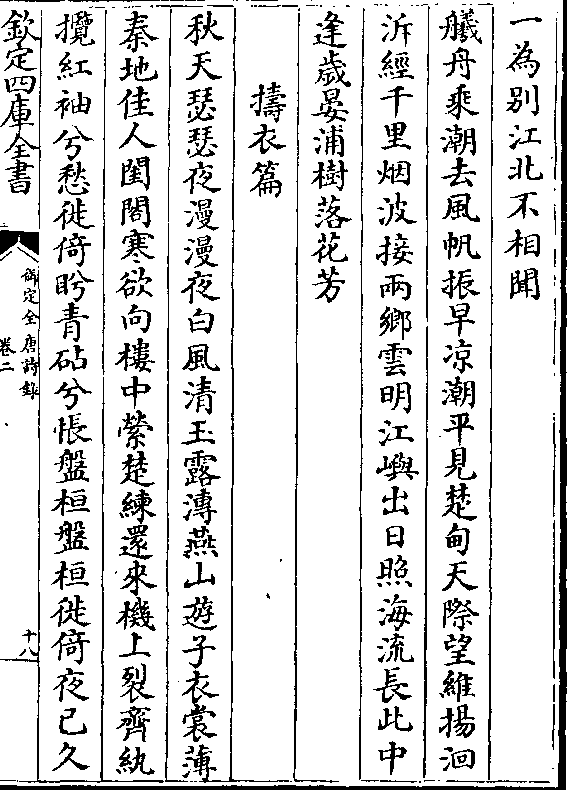 一為别江北不相聞
艤舟乘潮去風帆振早凉潮平見楚甸天際望維揚洄
泝經千里烟波接兩鄉雲明江嶼出日照海流長此中
逢歲晏浦樹落花芳
擣衣篇
秋天瑟瑟夜漫漫夜白風清玉露漙燕山遊子衣裳薄
秦地佳人閨閤寒欲向樓中縈楚練還來機上裂齊紈
攬紅袖兮愁徙倚盻青砧兮悵盤桓盤桓徙倚夜已久
欽定四庫全書
御定全唐詩錄
卷二
十八